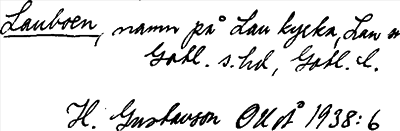 Lauboen, namn på Lau kyrka, Lau sn
Gotl. s. hd, Gotl. l.
H. Gustavson OUÅ 1938: 6